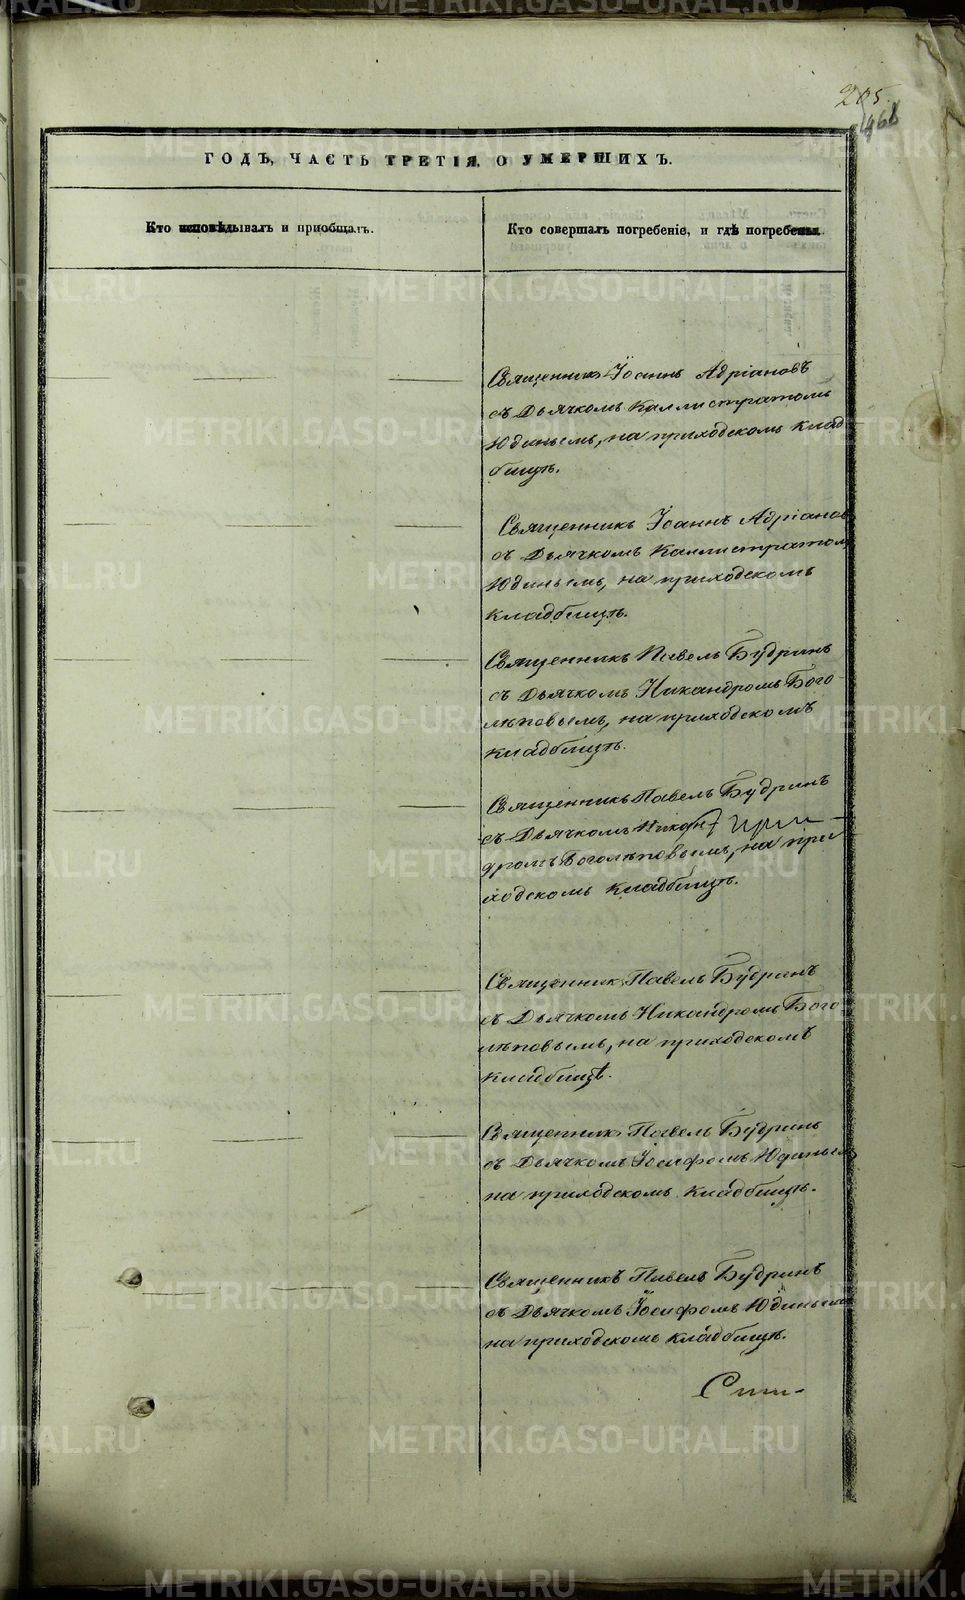 205.
466
ГОДЪ, ЧАСТЬ ТРЕТІЯ, О УМЕРШИХЪ.
Кто исповѣдывалъ и пріобщалъ.
Кто совершалъ погребеніе, и гдѣ погребены.
Священникъ Іоаннъ Адріановъ
съ Дьячкомъ Каллистратомъ
Юдинымъ, на приходскомъ клад
бищѣ.
Священникъ Іоаннъ Адріановъ
съ Дьячкомъ Каллистратомъ
Юдинымъ, на приходскомъ
кладбищѣ.
Священникъ Павелъ Будринъ
съ Дьячкомъ Никандромъ Бого-
лѣповымъ, на приходскомъ
кладбищѣ.
Священникъ Павелъ Будринъ
съ Дьячкомъ Никан
дромъ Боголѣповымъ, на при
ходскомъ кладбищѣ.
Священникъ Павелъ Будринъ
съ Дьячкомъ Никандромъ Бого
лѣповымъ, на приходскомъ
кладбищѣ.
Священникъ Павелъ Будринъ
съ Дьячкомъ Іосифомъ Юдинымъ
на приходскомъ кладбищѣ.
Священникъ Павелъ Будринъ
съ Дьячкомъ Іосифомъ Юдинымъ
на приходскомъ кладбищѣ.
METRIKI.GASO-URAL.RU